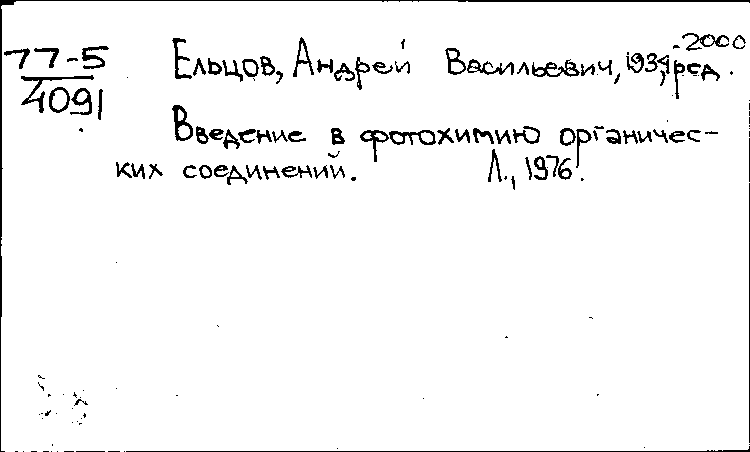 77-5
4091
Ельцов, Андрей Васильевич, 1934-2000, ред.
Введение в фотохимию органичес-
ких соединений. Л., 1976.